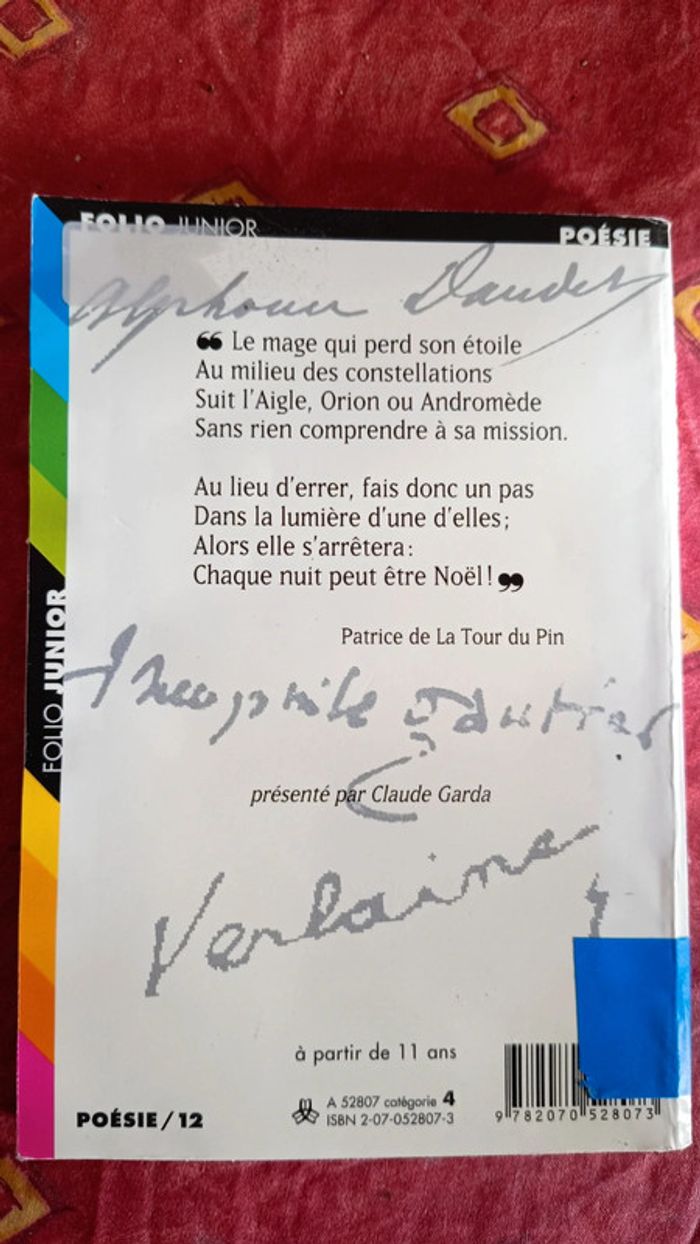 FOLIO JUNIOR
POÉSIE
Alphonse Daudet
❝ Le mage qui perd son étoile
Au milieu des constellations
Suit l'Aigle, Orion ou Andromède
Sans rien comprendre à sa mission.
Au lieu d'errer, fais donc un pas
Dans la lumière d'une d'elles;
Alors elle s'arrêtera:
Chaque nuit peut être Noël! ❞
Patrice de La Tour du Pin
FOLIO JUNIOR
Theophile Gautier
présenté par Claude Garda
Verlaine
à partir de 11 ans
A 52807 catégorie 4
ISBN 2-07-052807-3
POÉSIE/12
9 782070 528073